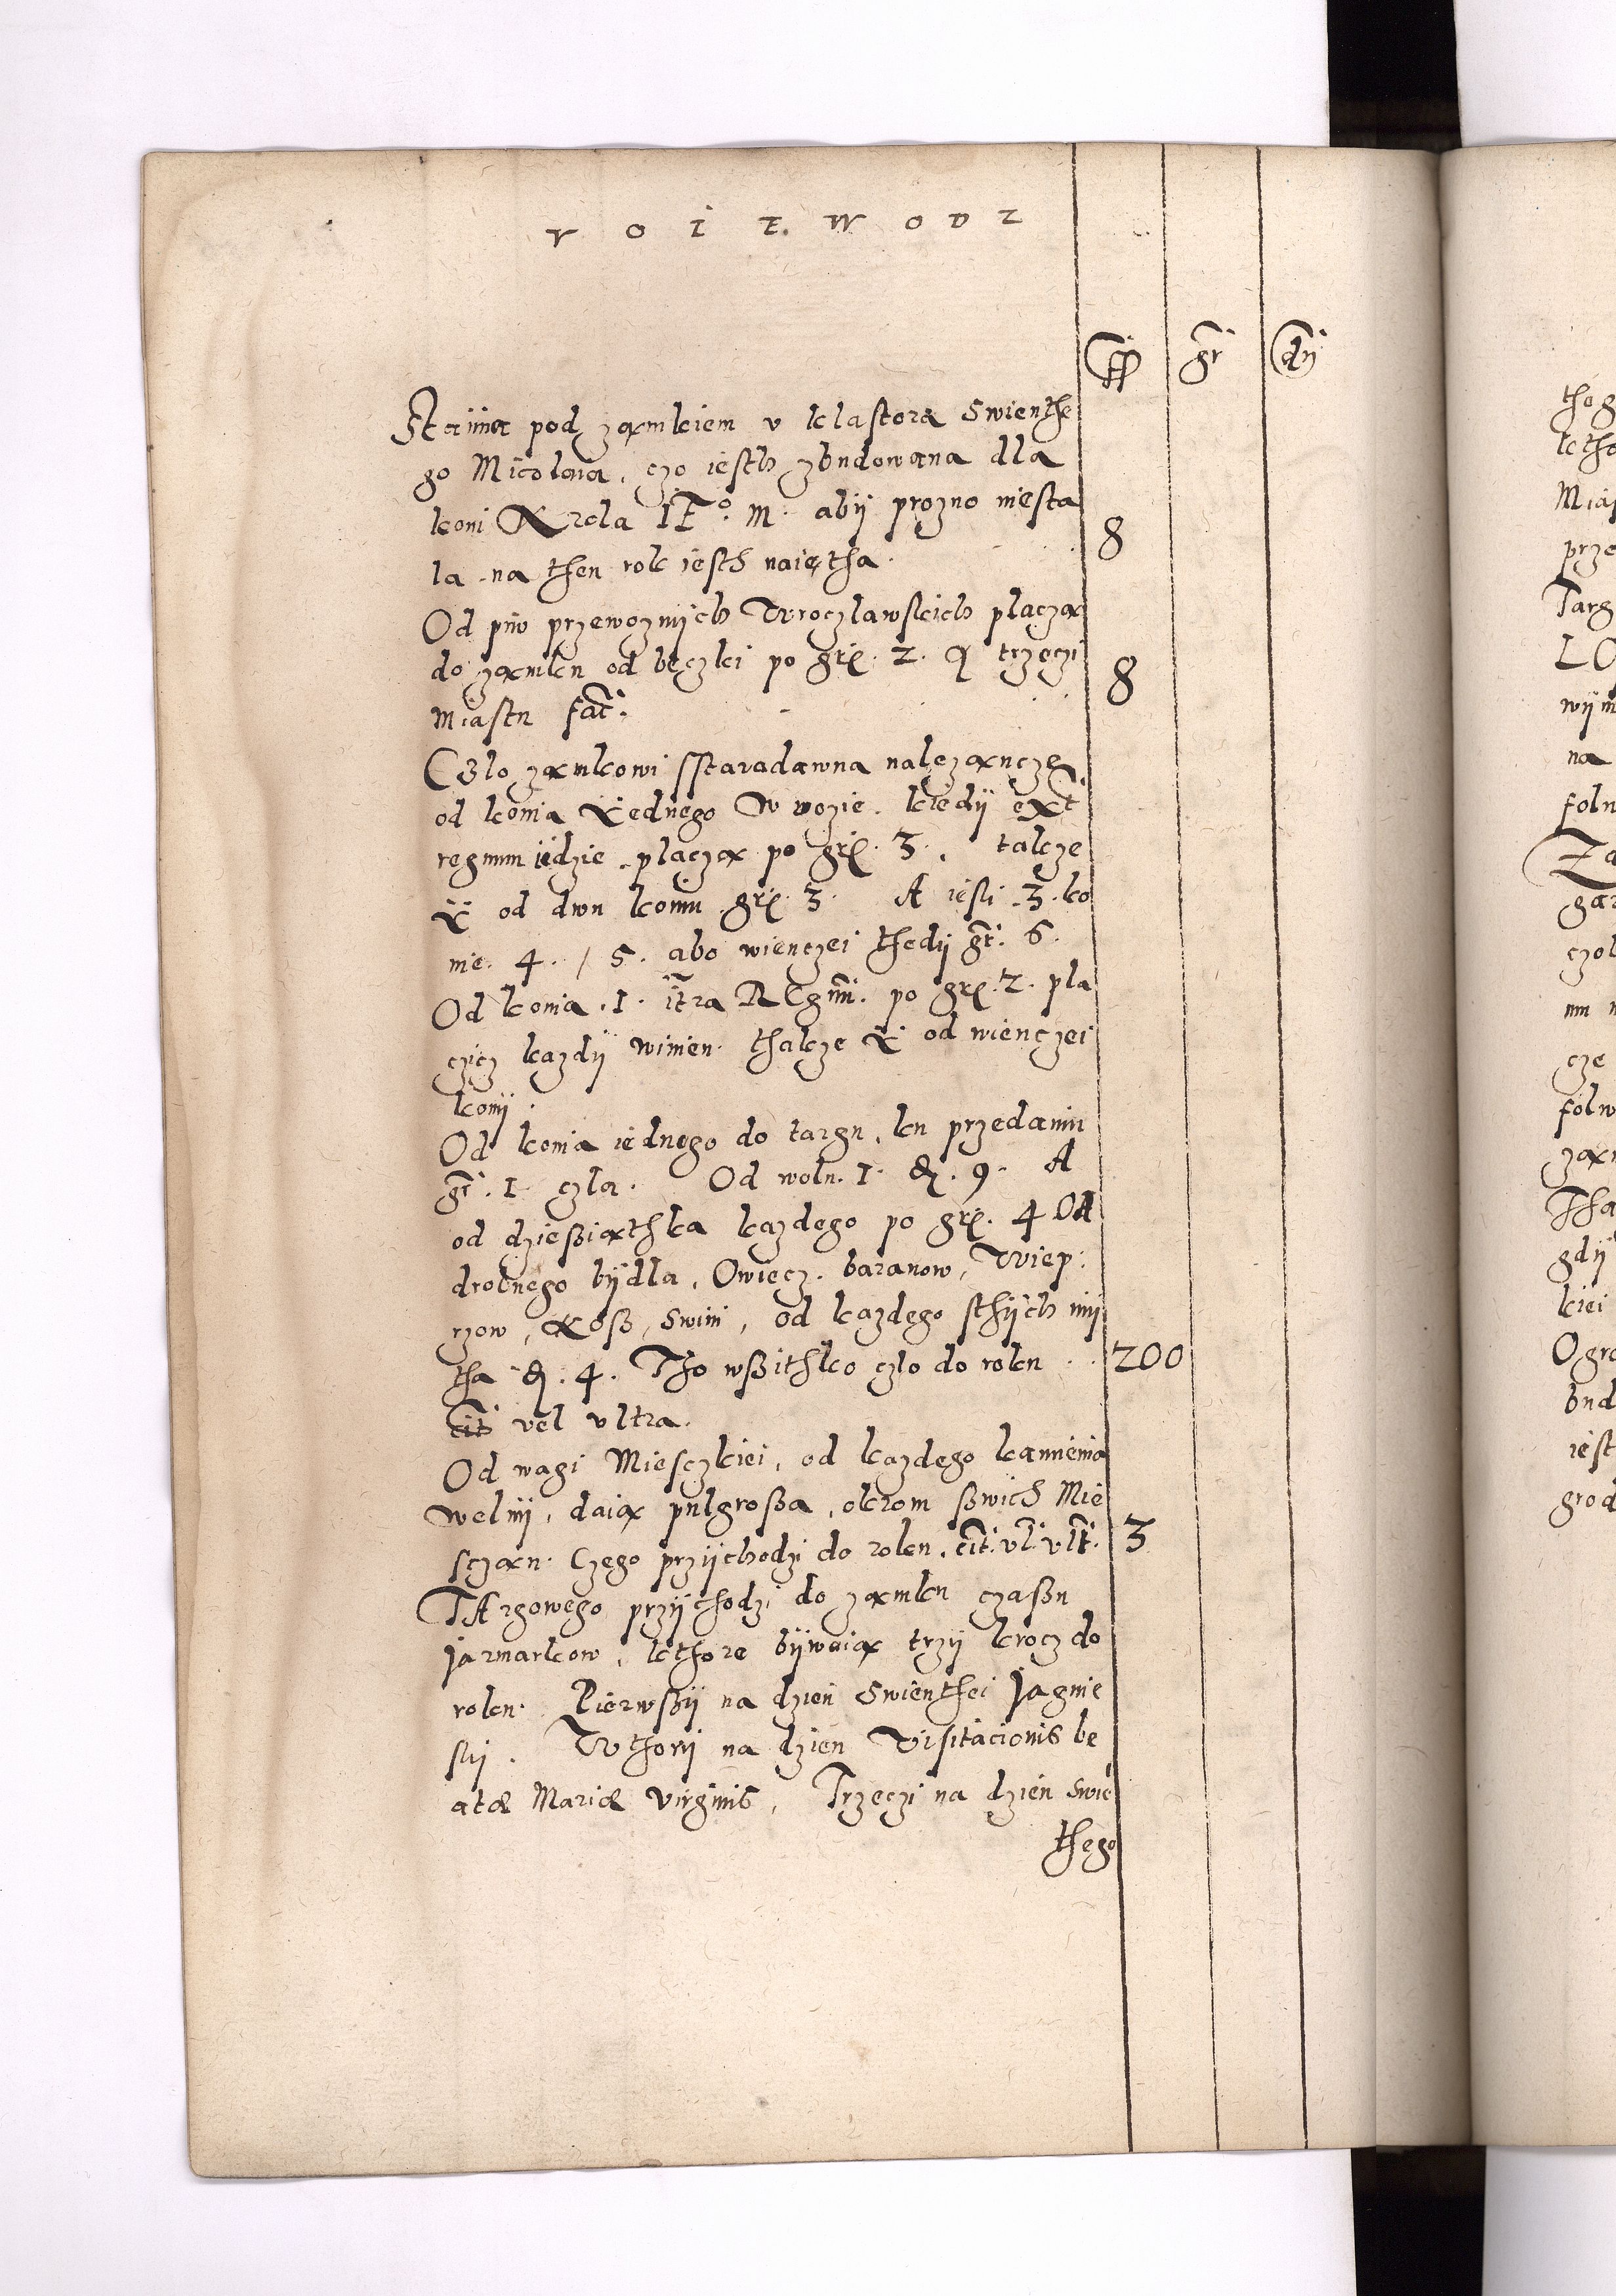 V O I E W O D Z
ff gr dń
Stainia pod zamkiem v klastora Swienthe
go Micolaia, czo iesth zbudowana dla
koni Krola JEº. M. abÿ prozno niesta
la na then rok iesth naiętha. 8
Od piw przewoznÿch Wroczlawskich placzą
do zamku od beczki po grj. 2. A trzeczi
Miastu facit. 8
Czlo zamkowi sstaradawna nalezancze
od konia Jednego W wozie. kiedÿ ext:
regnum iedzie placzą po grj. 3. takze
Y od dwu koniu grj. 3. A iesli 3. ko
nie. 4. / 5. abo wienczei thedÿ gr. 6.
Od konia .1. itra REgnu. po grj. 2. pla
czicz kazdÿ winien. thakze Y od wienczei
konÿ.
Od konia iednego do targu, ku przedaniu
gr. 1. czla. Od wolu. 1. d. 9. A
od dziesiąthka kazdego po grj. 4 Od
drobnego bÿdla, Owiecz. baranow, Wiep:
rzow, Kosz, swini, od kazdego sthÿch mÿ
tha d. 4. Tho wszithko czlo do roku .. 200
cit vel vltra.
Od wagi Miesczkiei, od kazdego kamienia
welnÿ, daią pulgrosza, okrom swich Mie
sczan. Czego przÿchodzi do roku. cit. vl. vlt. 3
TArgowego przÿchodzi do zamku czasu
Jarmarkow, kthore bÿwaią trzÿ krocz do
roku. Pierwszÿ na dzien Swienthei Jagnie
skÿ. Wthorÿ na dzien Visitacionis be
atæ Mariæ Virginis, Trzeczi na dzien Swię
thego